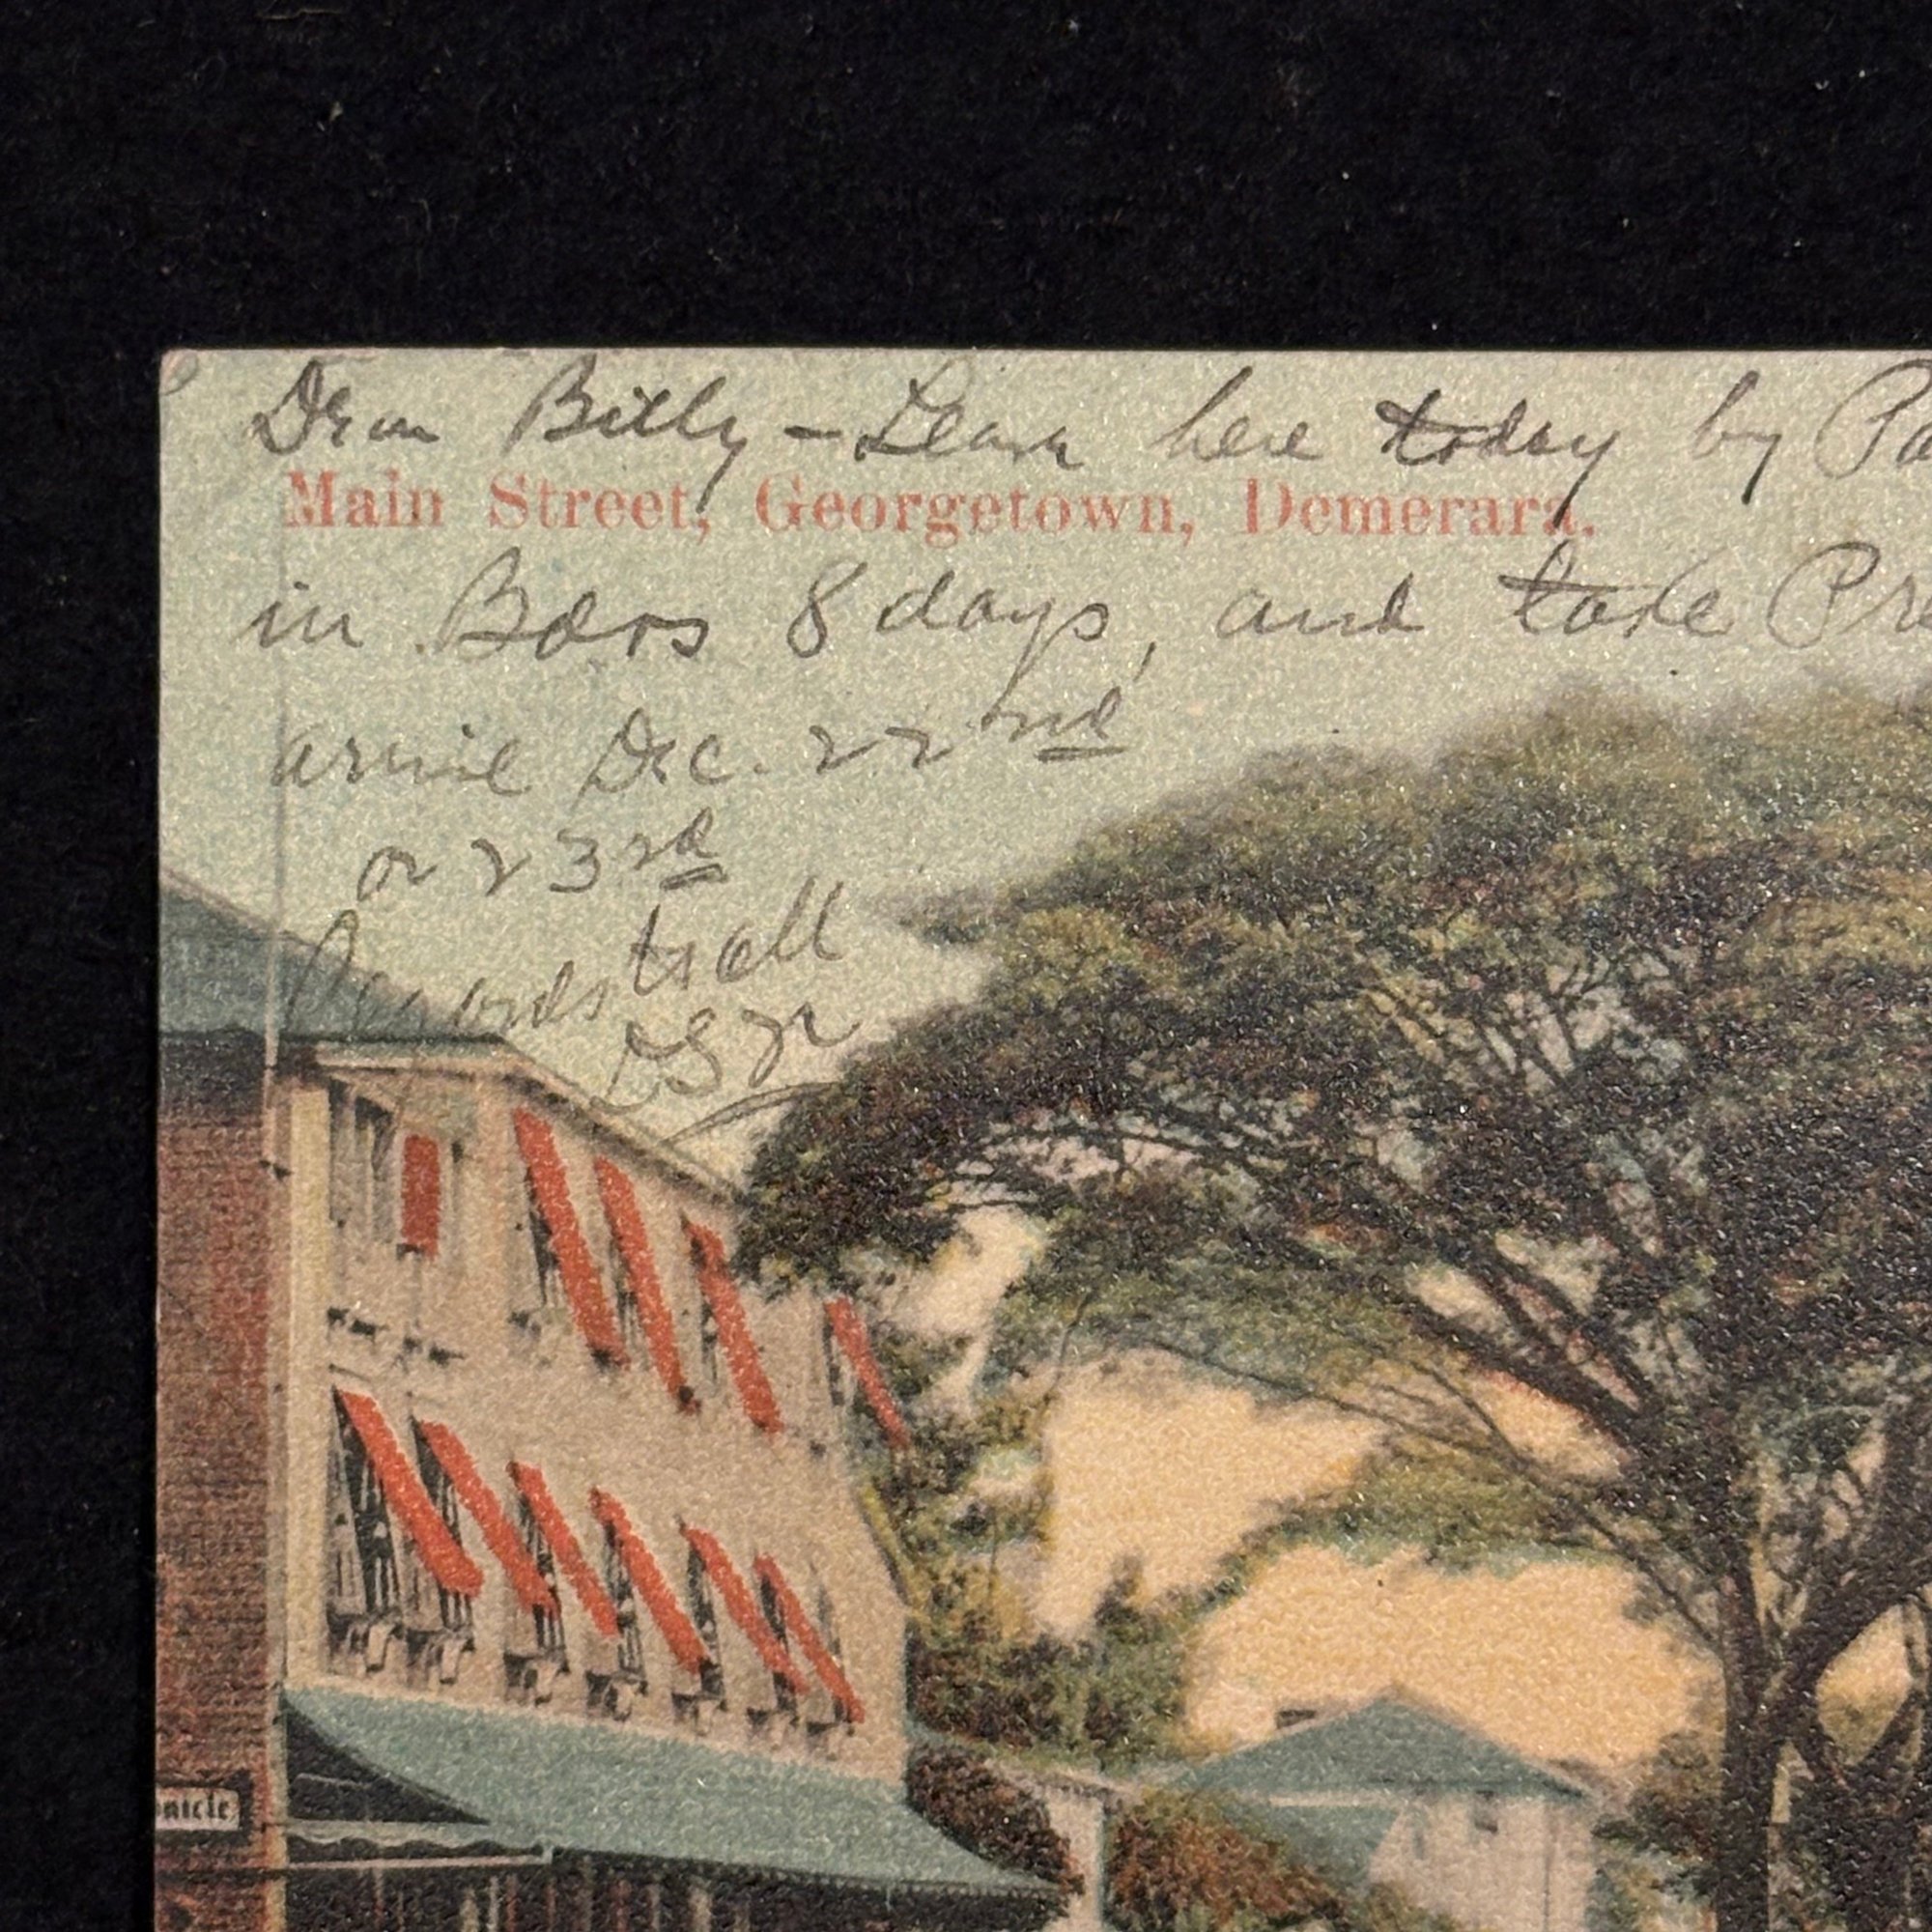 Dear Billy – Leave here today by Pa
Main Street, Georgetown, Demerara.
in Bdos 8 days, and take Pr
arrive Dec. 22nd
or 23rd
to all
nicle